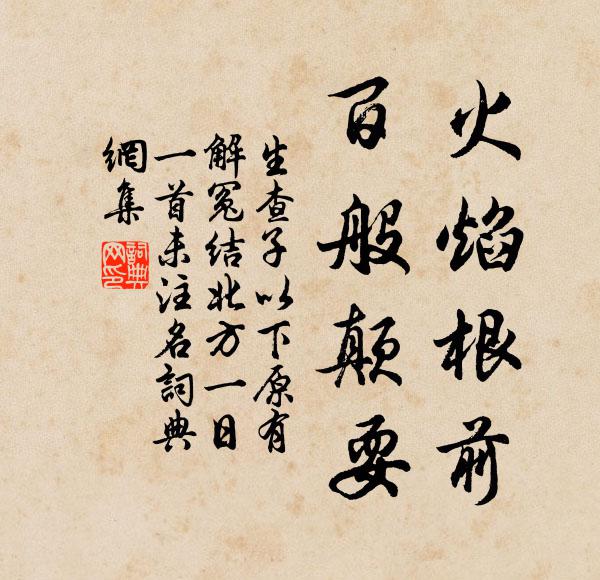 火焰根前
百般颠耍
生查子以下原有
解冤结北方一日
一首未注名詞典
網集
詞典网印